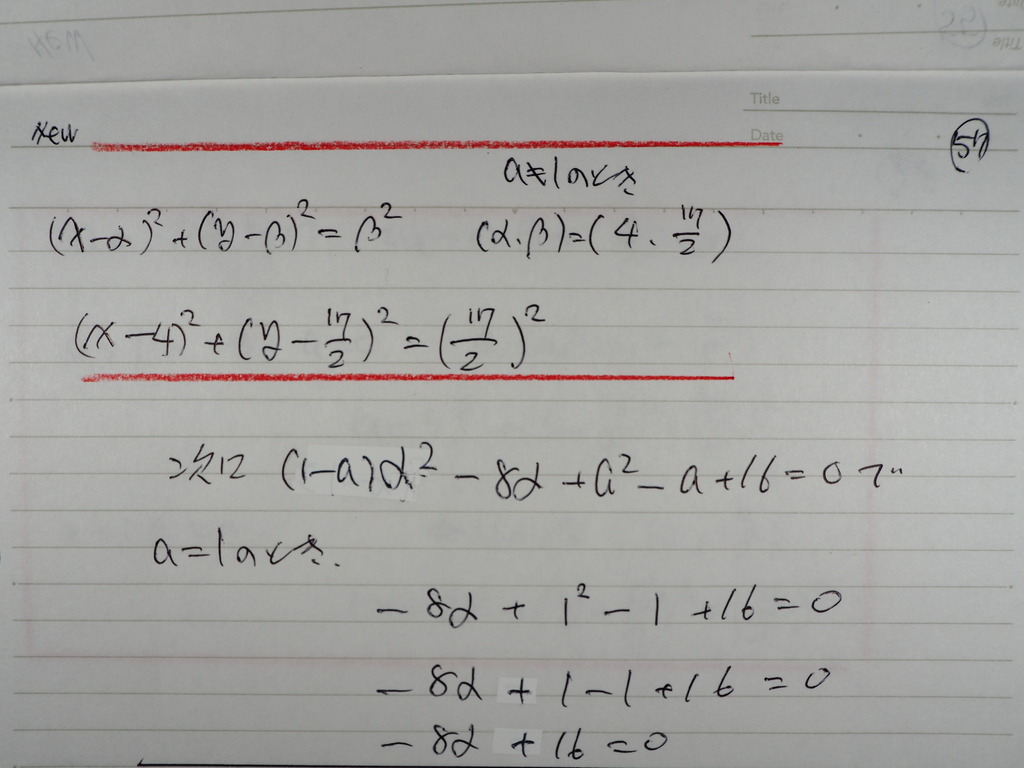 Title
Date
New
57
a≠1のとき
(x-α)²+(y-β)²=β² (α.β)=(4.17/2)
(x-4)²+(y-17/2)²=(17/2)²
次に (1-a)α²-8α+a²-a+16=0で
a=1のとき.
-8α+1²-1+16=0
-8α+1-1+16=0
-8α+16=0